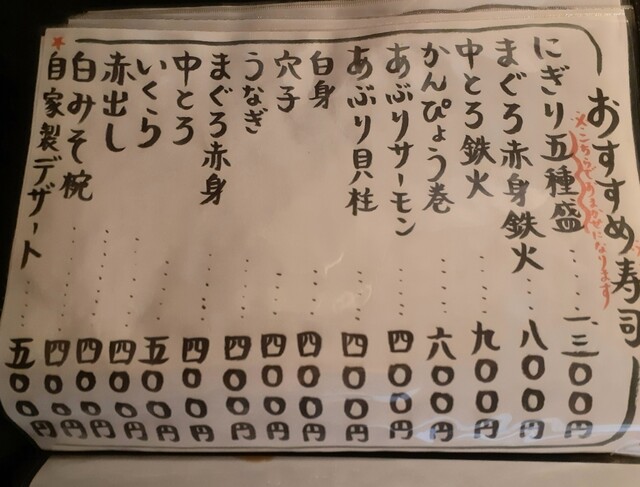 おすすめ寿司
※こちらでおまかせになります
にぎり五種盛……一、三〇〇円
まぐろ赤身鉄火……八〇〇円
中とろ鉄火……九〇〇円
かんぴょう巻……六〇〇円
あぶりサーモン……四〇〇円
あぶり貝柱……四〇〇円
白身……四〇〇円
穴子……四〇〇円
うなぎ……四〇〇円
まぐろ赤身……四〇〇円
中とろ……四〇〇円
いくら……五〇〇円
赤出し……四〇〇円
白みそ椀……四〇〇円
★自家製デザート……五〇〇円